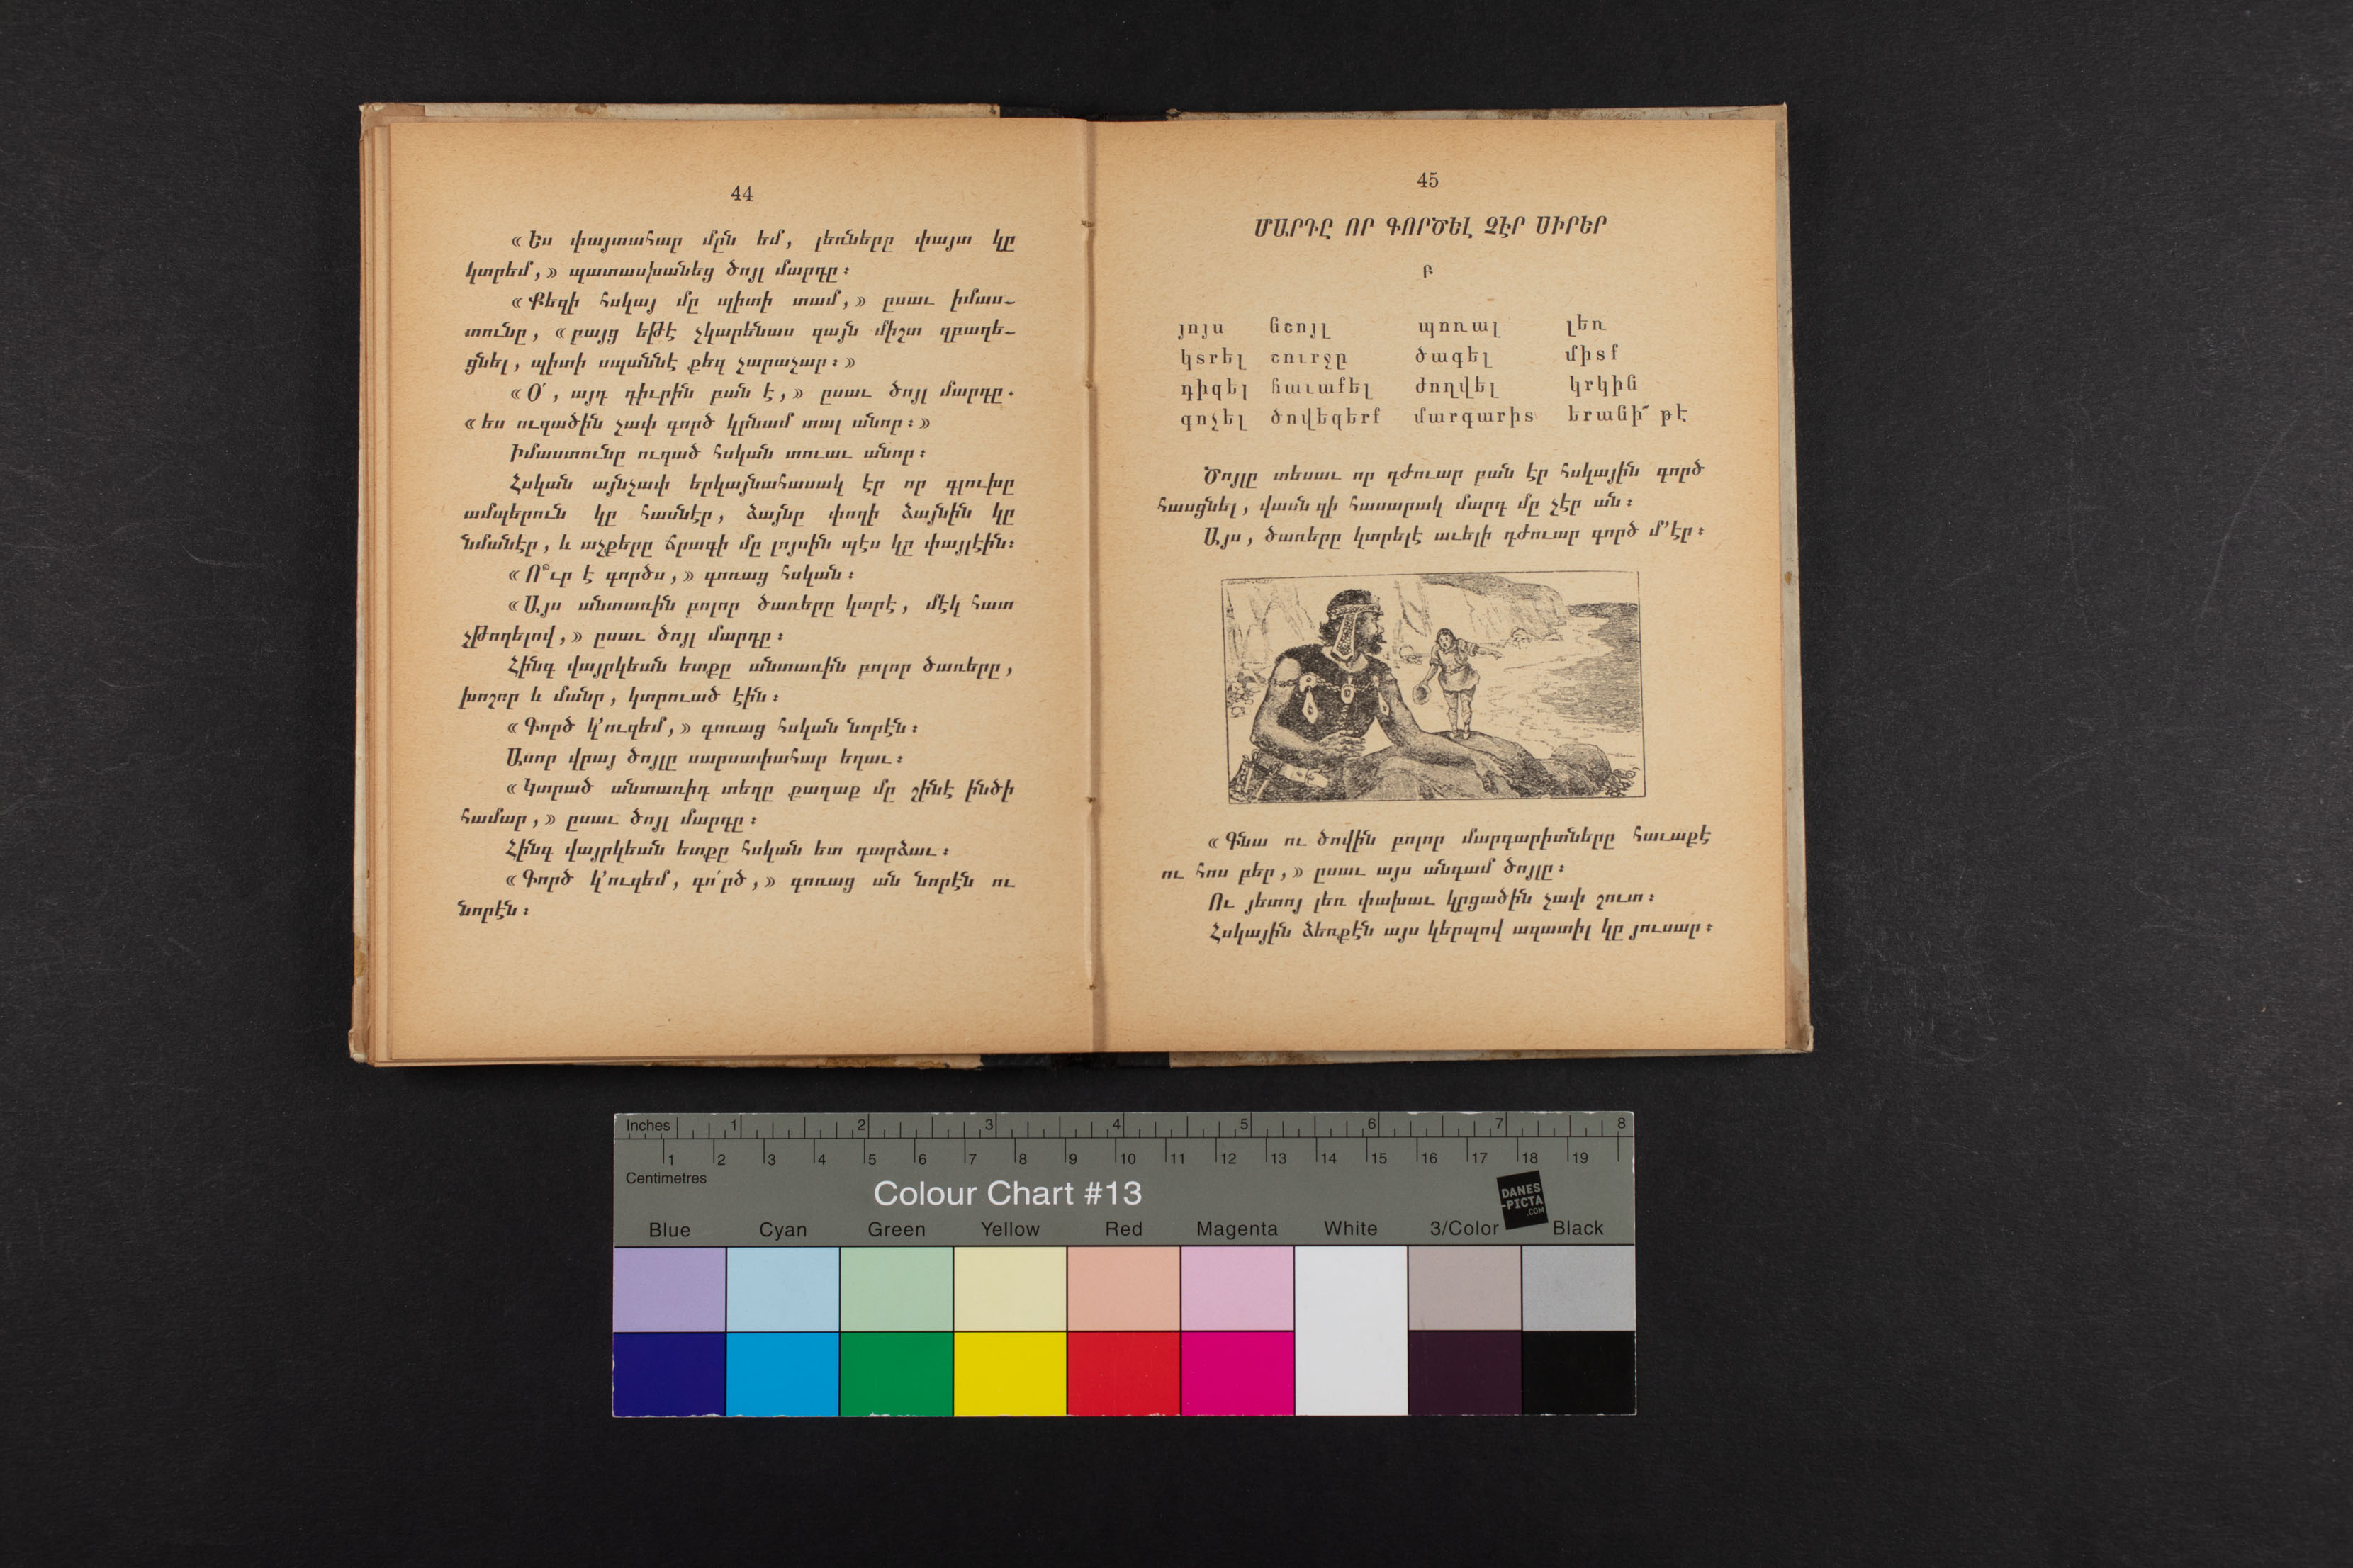 44
«Ես փայտահար մըն եմ, լեռները փայտ կը
կտրեմ,» պատասխանեց ծոյլ մարդը։
«Քեզի հսկայ մը պիտի տամ,» ըսաւ իմաս-
տունը, «բայց եթէ չկարենաս զայն միշտ զբաղե-
ցնել, պիտի սպաննէ քեզ չարաչար։»
«Օ՛, այդ դիւրին բան է,» ըսաւ ծոյլ մարդը.
«ես ուզածին չափ գործ կրնամ տալ անոր։»
Իմաստունը ուզած հսկան տուաւ անոր։
Հսկան այնչափ երկայնահասակ էր որ գլուխը
ամպերուն կը հասնէր, ձայնը փողի ձայնին կը
նմանէր, և աչքերը ճրագի մը լոյսին պէս կը փայլէին։
«Ո՞ւր է գործս,» գոռաց հսկան։
«Այս անտառին բոլոր ծառերը կտրէ, մէկ հատ
չթողելով,» ըսաւ ծոյլ մարդը։
Հինգ վայրկեան ետքը անտառին բոլոր ծառերը,
խոշոր և մանր, կտրուած էին։
«Գործ կ՚ուզեմ,» գոռաց հսկան նորէն։
Ասոր վրայ ծոյլը սարսափահար եղաւ։
«Կտրած անտառիդ տեղը քաղաք մը շինէ ինծի
համար,» ըսաւ ծոյլ մարդը։
Հինգ վայրկեան ետքը հսկան ետ դարձաւ։
«Գործ կ՚ուզեմ, գո՛րծ,» գոռաց ան նորէն ու
նորէն։
45
ՄԱՐԴԸ ՈՐ ԳՈՐԾԵԼ ՉԷՐ ՍԻՐԵՐ
Բ
յոյս նշոյլ պոռալ լեռ
կտրել շուրջը ծագել միտք
դիզել հաւաքել ժողվել կրկին
գոչել ծովեզերք մարգարիտ երանի՜ թէ
Ծոյլը տեսաւ որ դժուար բան էր հսկային գործ
հասցնել, վասն զի հասարակ մարդ մը չէր ան։
Այս, ծառերը կտրելէ աւելի դժուար գործ մ՚էր։
«Գնա ու ծովին բոլոր մարգարիտները հաւաքէ
ու հոս բեր,» ըսաւ այս անգամ ծոյլը։
Ու յետոյ լեռ փախաւ կրցածին չափ շուտ։
Հսկային ձեռքէն այս կերպով ազատիլ կը յուսար։
Inches 1 2 3 4 5 6 7 8
1 2 3 4 5 6 7 8 9 10 11 12 13 14 15 16 17 18 19
Centimetres
Colour Chart #13
DANES
-PICTA
.COM
Blue Cyan Green Yellow Red Magenta White 3/Color Black